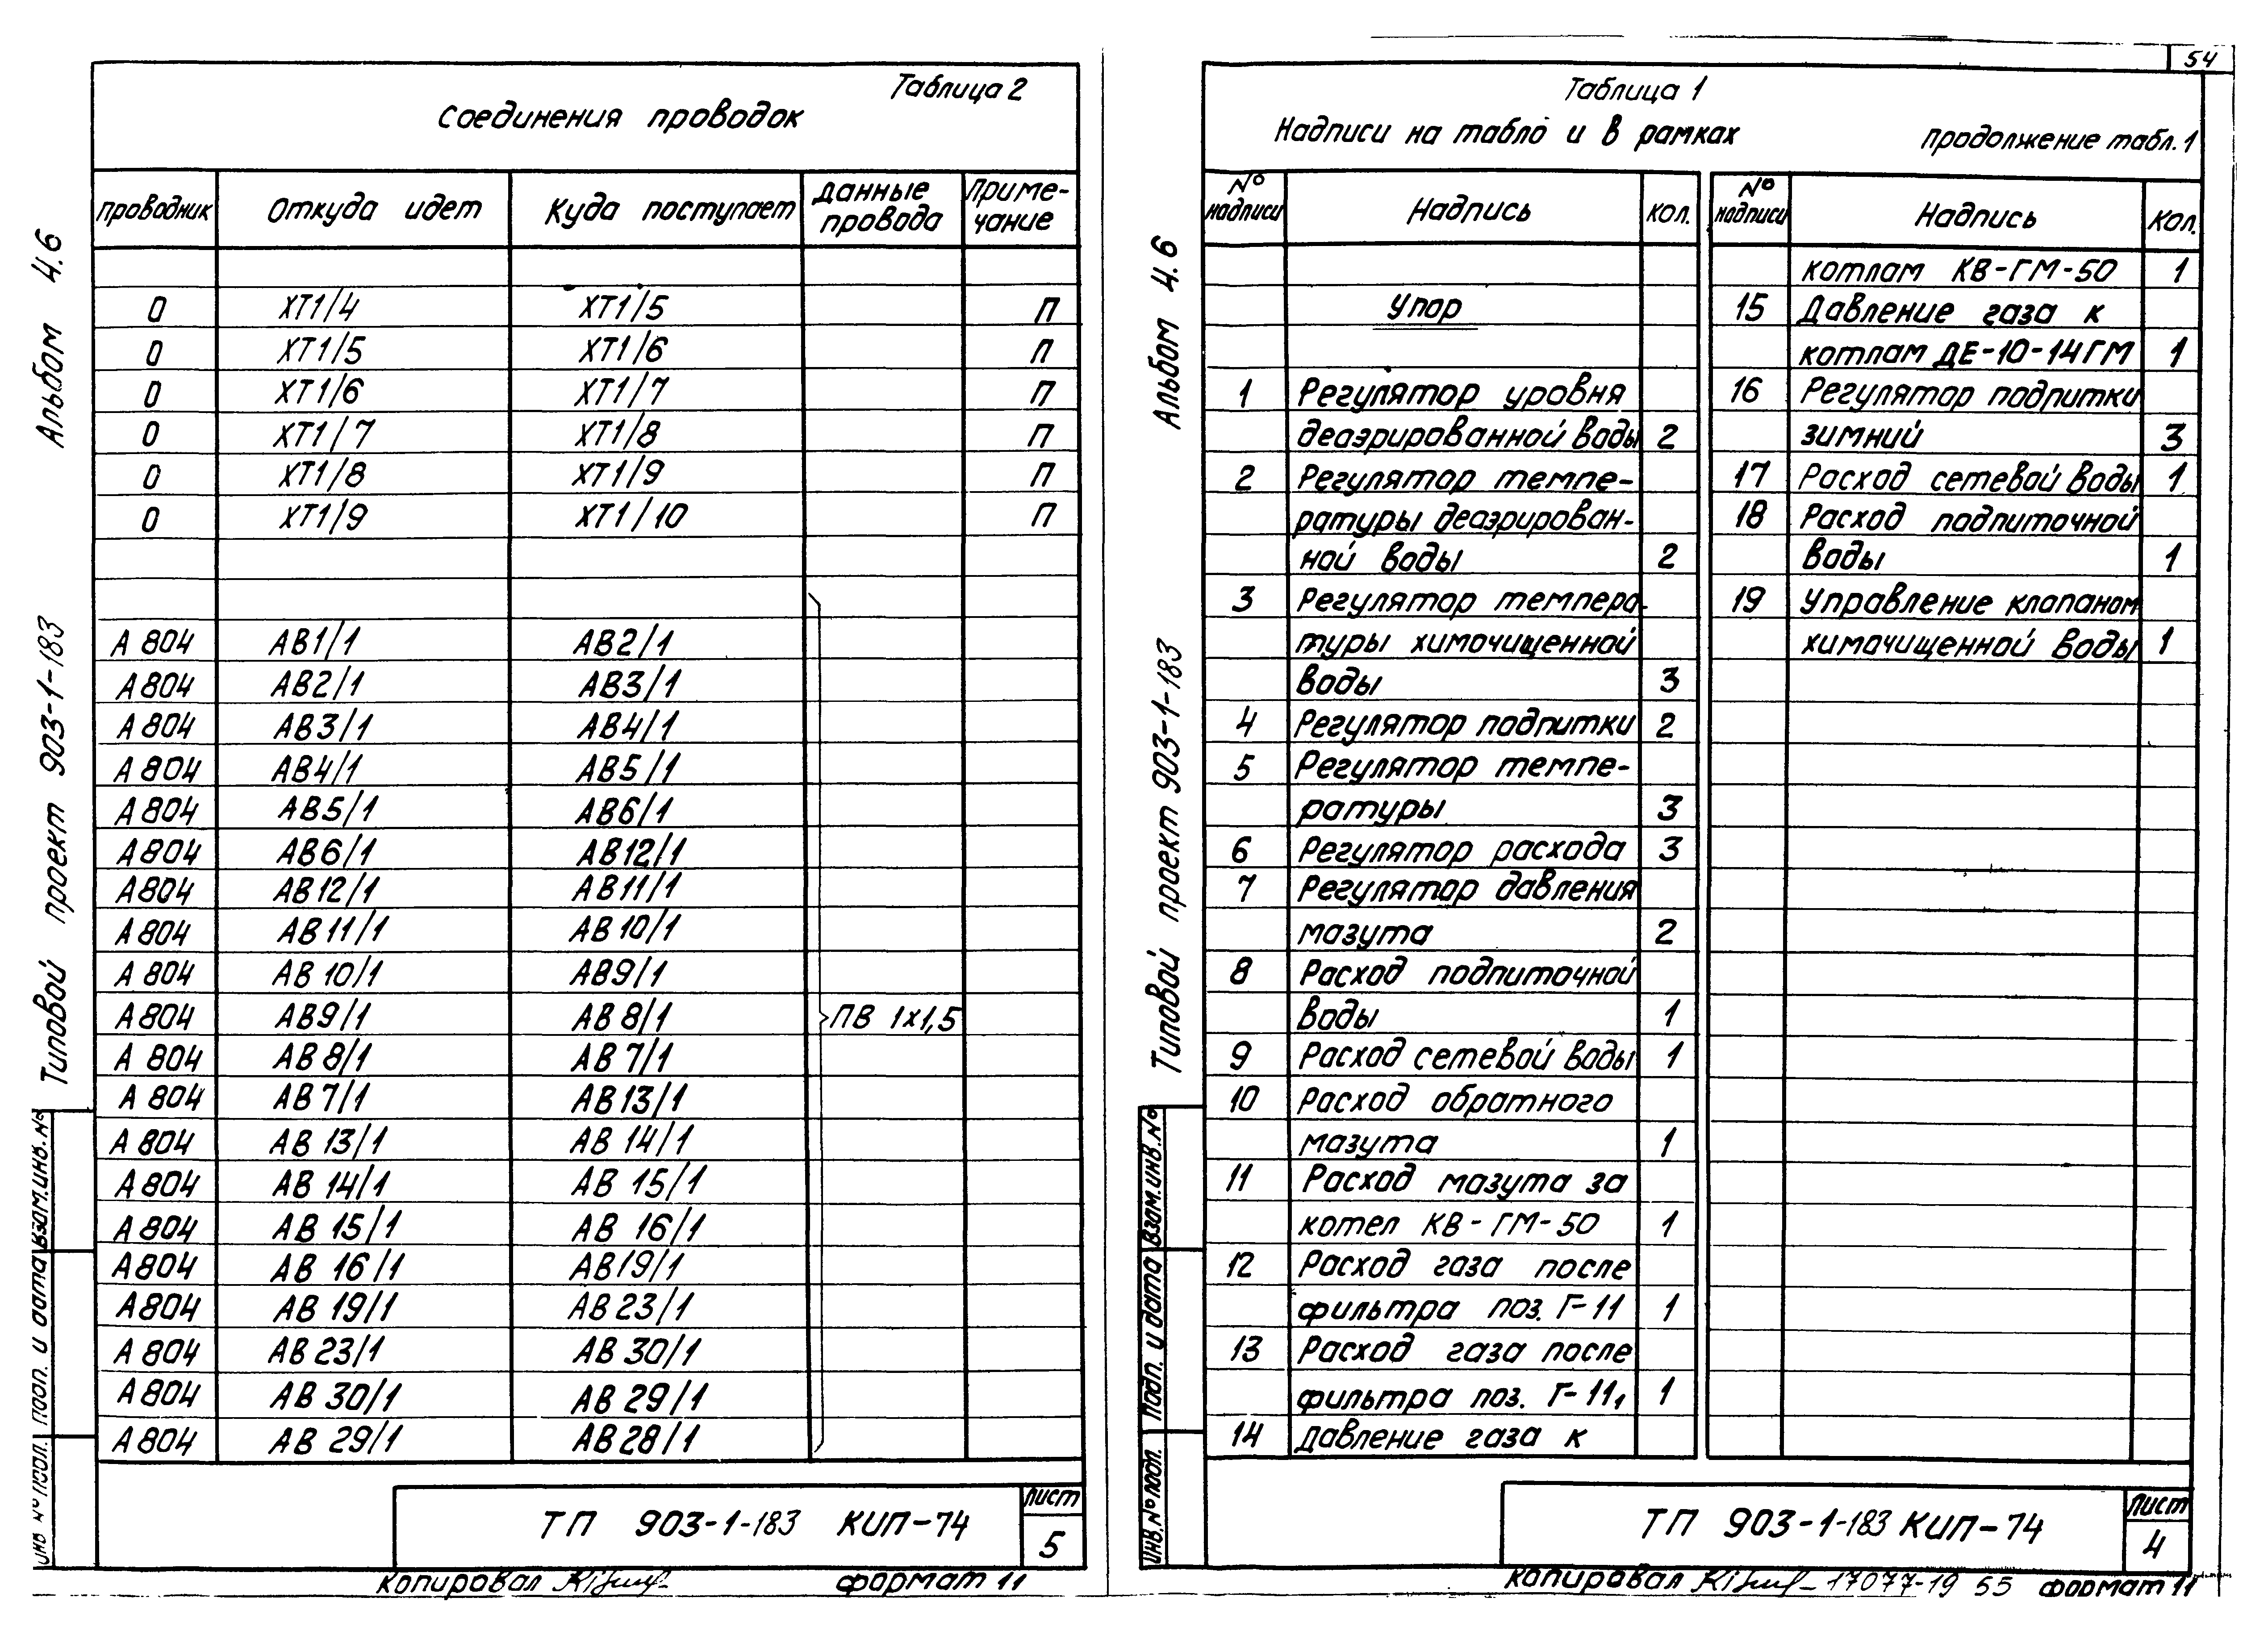 Таблица 2
Соединения проводок
Проводник Откуда идет Куда поступает Данные провода Приме-чание
0 ХТ1/4 ХТ1/5 П
0 ХТ1/5 ХТ1/6 П
0 ХТ1/6 ХТ1/7 П
0 ХТ1/7 ХТ1/8 П
0 ХТ1/8 ХТ1/9 П
0 ХТ1/9 ХТ1/10 П
А 804 АВ1/1 АВ2/1
А 804 АВ2/1 АВ3/1
А 804 АВ3/1 АВ4/1
А 804 АВ4/1 АВ5/1
А 804 АВ5/1 АВ6/1
А 804 АВ6/1 АВ12/1
А 804 АВ12/1 АВ11/1
А 804 АВ11/1 АВ10/1
А 804 АВ10/1 АВ9/1
А 804 АВ9/1 АВ8/1 ПВ 1х1,5
А 804 АВ8/1 АВ7/1
А 804 АВ7/1 АВ13/1
А 804 АВ13/1 АВ14/1
А 804 АВ14/1 АВ15/1
А 804 АВ15/1 АВ16/1
А 804 АВ16/1 АВ19/1
А 804 АВ19/1 АВ23/1
А 804 АВ23/1 АВ30/1
А 804 АВ30/1 АВ29/1
А 804 АВ29/1 АВ28/1
ТП 903-1-183 КИП-74
Лист
5
Копировал
формат 11
Типовой проект 903-1-183 Альбом 4.6
Инв № подл. Подп. и дата Взам.инв.№
54
Таблица 1
Надписи на табло и в рамках
Продолжение табл.1
№ надписи Надпись кол.
Упор
1 Регулятор уровня
деаэрированной воды 2
2 Регулятор темпе-
ратуры деаэрирован-
ной воды 2
3 Регулятор темпера-
туры химочищенной
воды 3
4 Регулятор подпитки 2
5 Регулятор темпе-
ратуры 3
6 Регулятор расхода 3
7 Регулятор давления
мазута 2
8 Расход подпиточной
воды 1
9 Расход сетевой воды 1
10 Расход обратного
мазута 1
11 Расход мазута за
котел КВ-ГМ-50 1
12 Расход газа после
фильтра поз. Г-11 1
13 Расход газа после
фильтра поз. Г-11₁ 1
14 Давление газа к
№ надписи Надпись кол.
котлам КВ-ГМ-50 1
15 Давление газа к
котлам ДЕ-10-14ГМ 1
16 Регулятор подпитки
зимний 3
17 Расход сетевой воды 1
18 Расход подпиточной
воды 1
19 Управление клапаном
химочищенной воды 1
ТП 903-1-183 КИП-74
Лист
4
Копировал
17077-19 55 формат 11
Типовой проект 903-1-183 Альбом 4.6
Инв.№ подл. Подп. и дата Взам.инв.№